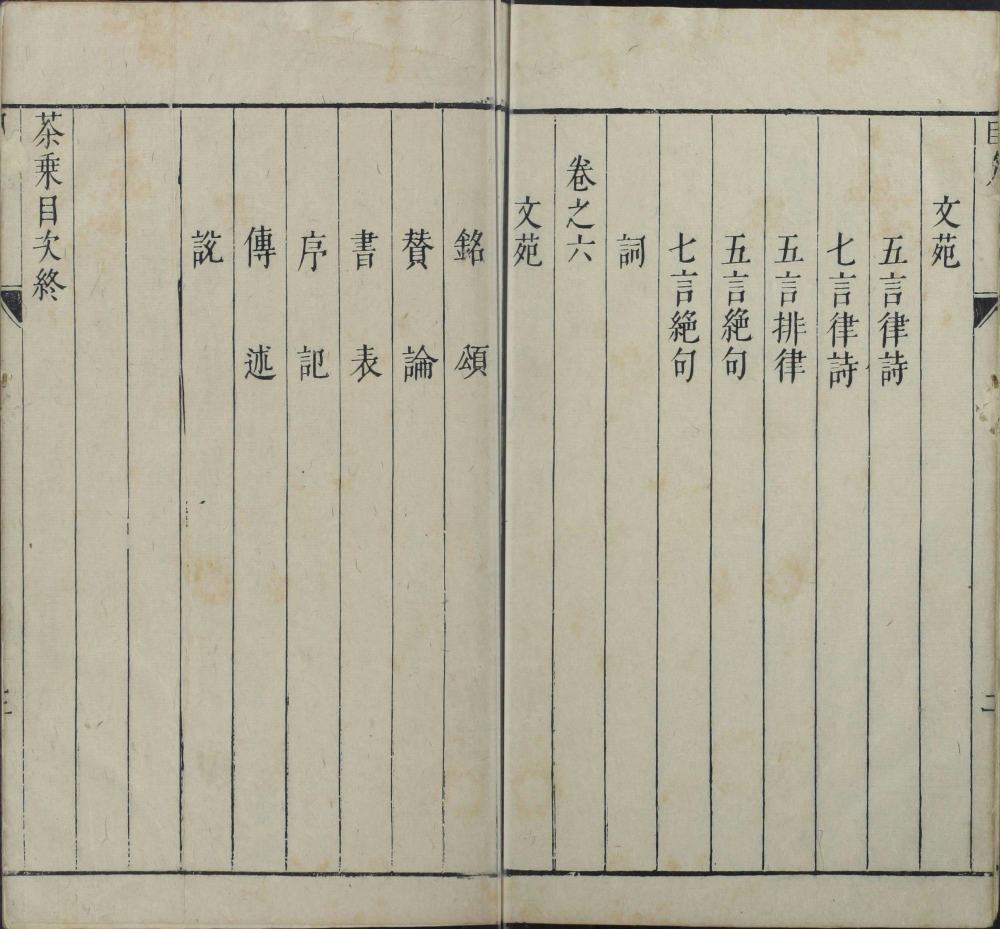 文苑
五言律詩
七言律詩
五言排律
五言絶句
七言絶句
詞
卷之六
文苑
銘 頌
賛 論
書 表
序 記
傳 述
說
茶乗目次終